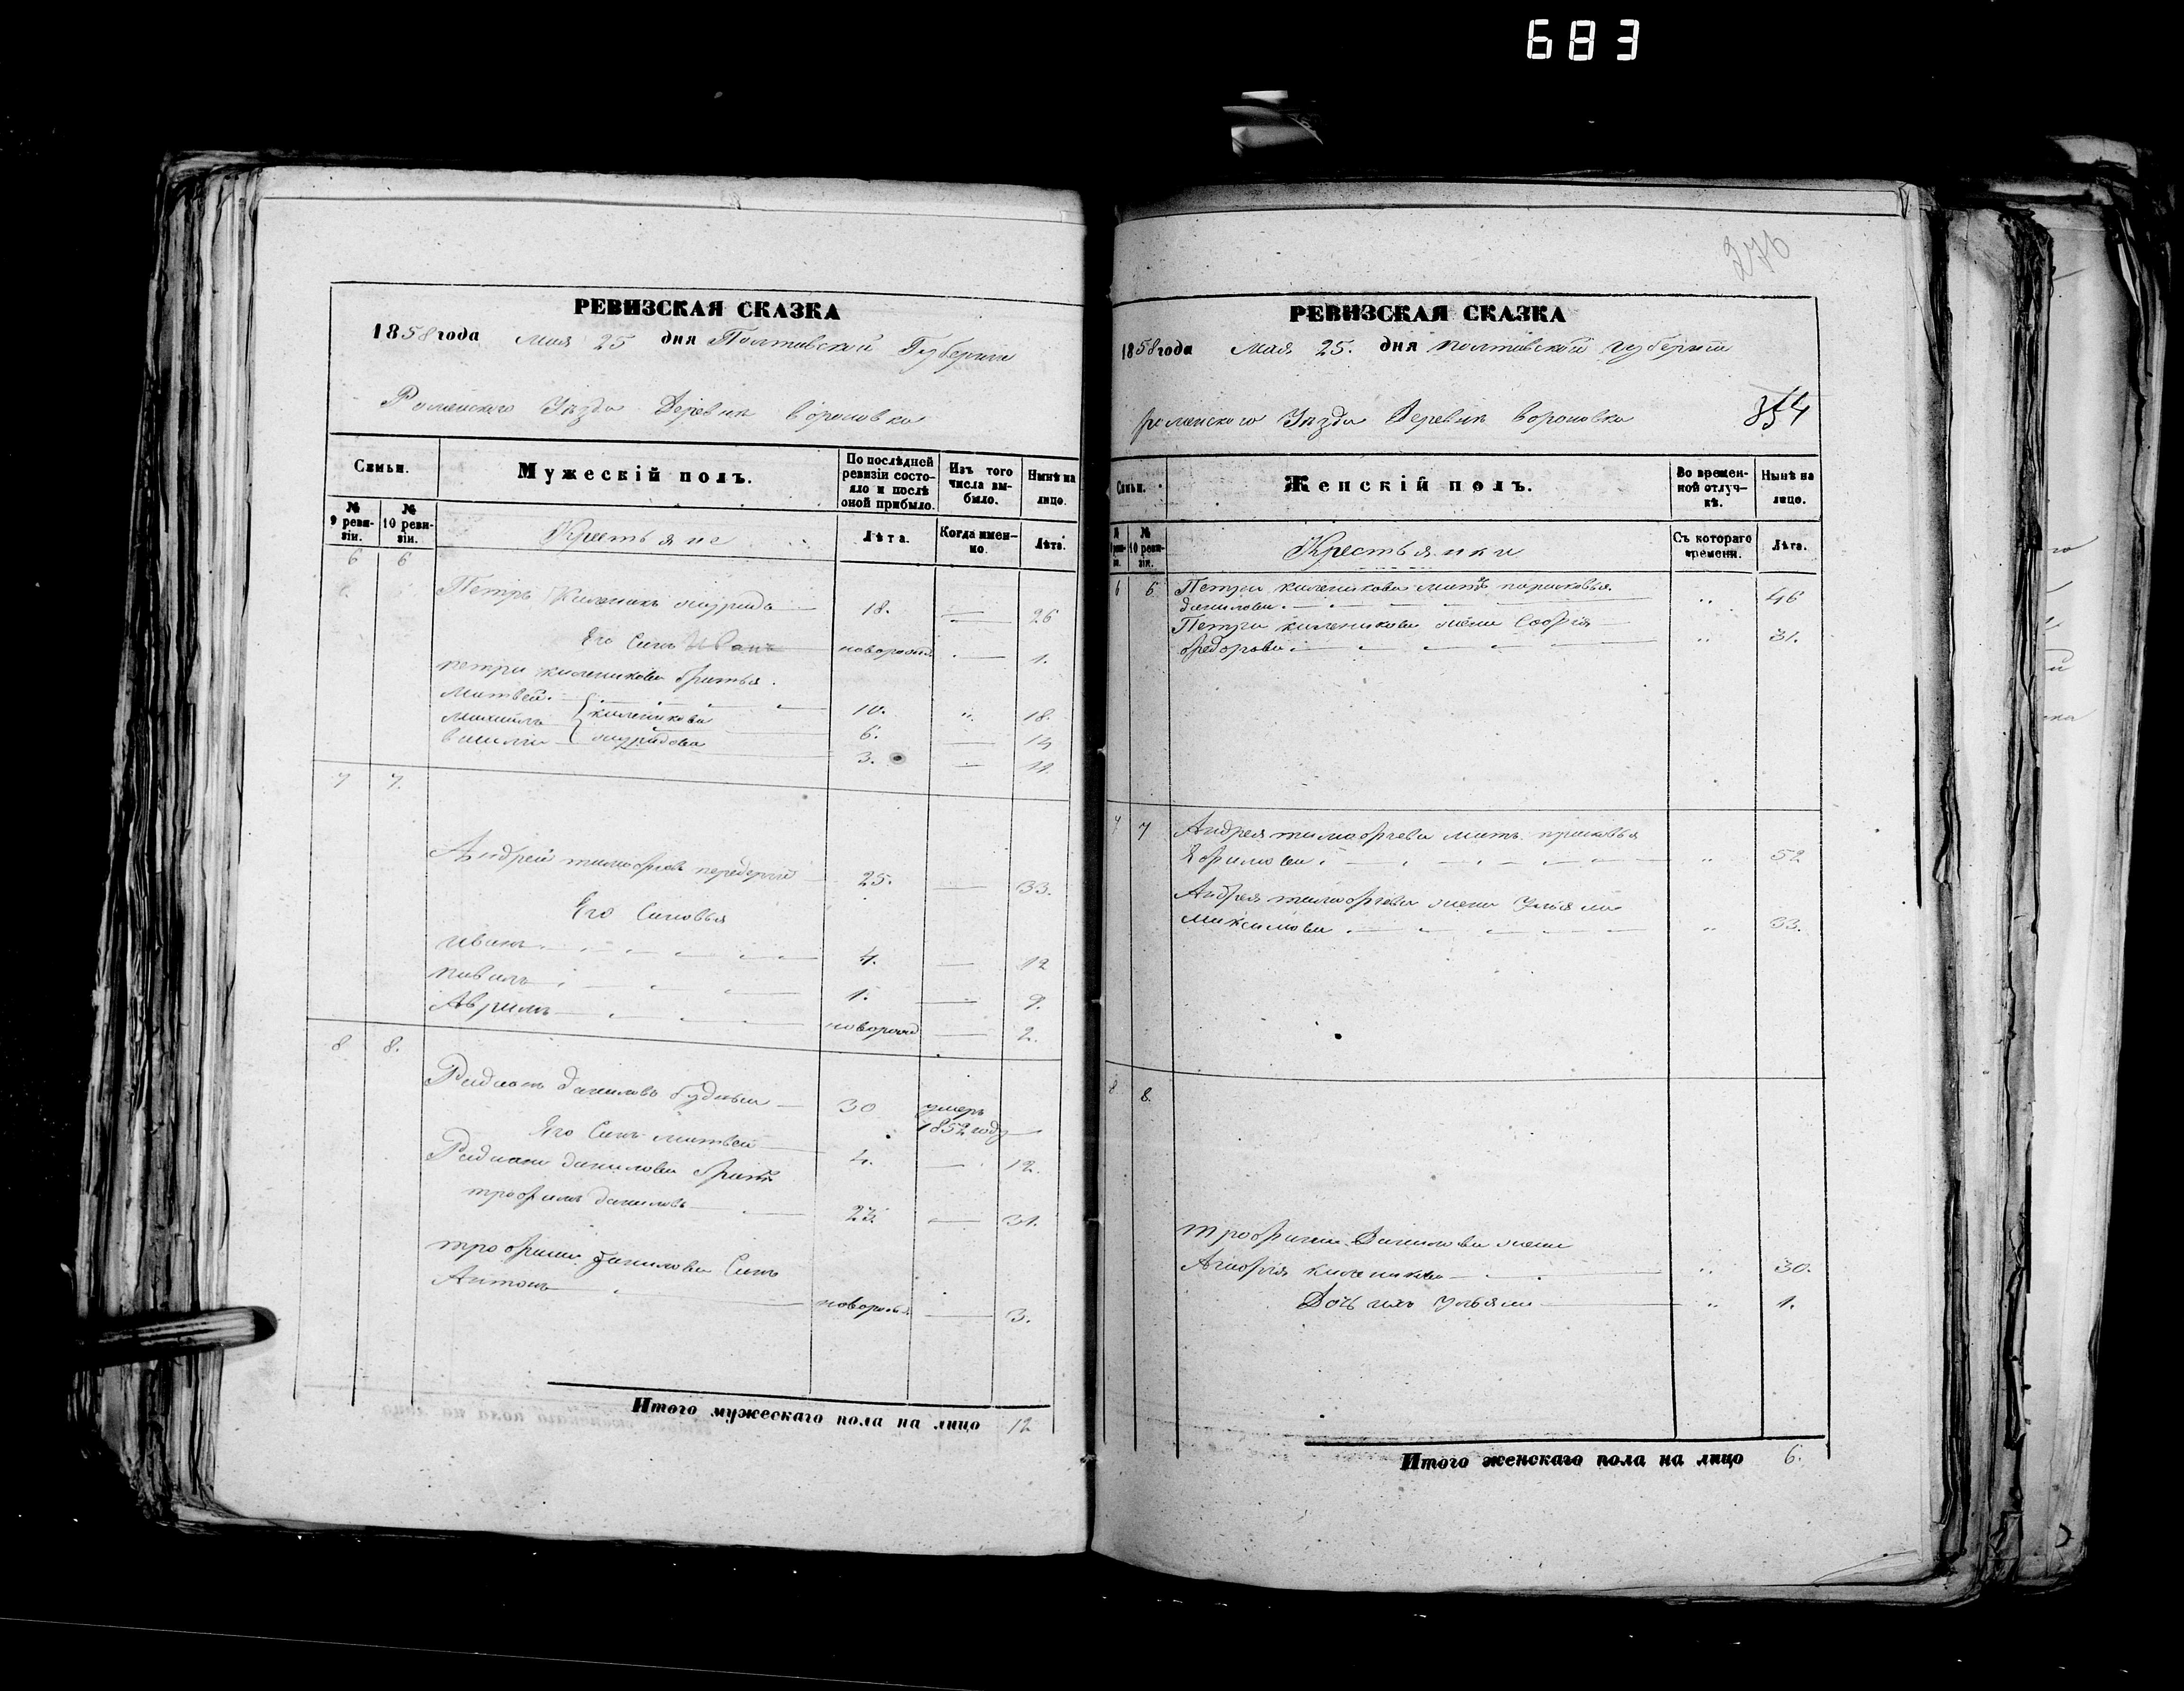 683
РЕВИЗСКАЯ СКАЗКА
1858 года мая 25 дня Полтавской Губернии
Роменского Уѣзда Деревни Вороновка
Семьи.
Мужескій полъ.
По послѣдней ревизіи состояло и послѣ оной прибыло.
Изъ того числа выбыло.
Нынѣ на лицо.
№ 9 ревизіи.
№ 10 ревизіи.
Крестьяне
Лѣта.
Когда именно.
Лѣта.
6 6
Петръ Килеников 18. — 26
Его Синъ Иванъ новорожд — 1.
петра киленикова братья.
Матвей 10. „ 18.
Михаилъ киленикови 6. — 14
василий 3. — 11.
7 7.
Андрей тимофеевъ передерий 25. — 33.
Его Синовья
иванъ 4. — 12
павелъ 1. — 9.
Аврамъ новорожд — 2.
8. 8.
Радионъ даниловъ 30 умеръ 1852 году —
Его Синъ матвей 4. — 12.
Радиона данилова братъ
трофимъ даниловъ 23. — 31.
трофима данилова Синъ
Антонъ новорожд — 3.
Итого мужескаго пола на лицо 12
276
РЕВИЗСКАЯ СКАЗКА
1858 года мая 25. дня полтавской губерний
роменского Уѣзда Деревни вороновка
354
Семьи.
Женскій полъ.
Во временной отлучкѣ.
Нынѣ на лицо.
№ 9 ревизіи.
№ 10 ревизіи.
Крестьянки
Съ котораго времени.
Лѣта.
6 6 Петра киленикова мать парасковья
данилова „ 46
Петра киленикова жена София
федорова „ 31.
7 7 Андрея тимофеева мать прасковья
Ефимова „ 52
Андрея тимофеева жена Ульяна
Максимова „ 33.
8 8.
трофима Данилова жена
Агафия киленикова „ 30.
Дочь ихъ Ульяна „ 1.
Итого женскаго пола на лицо 6.